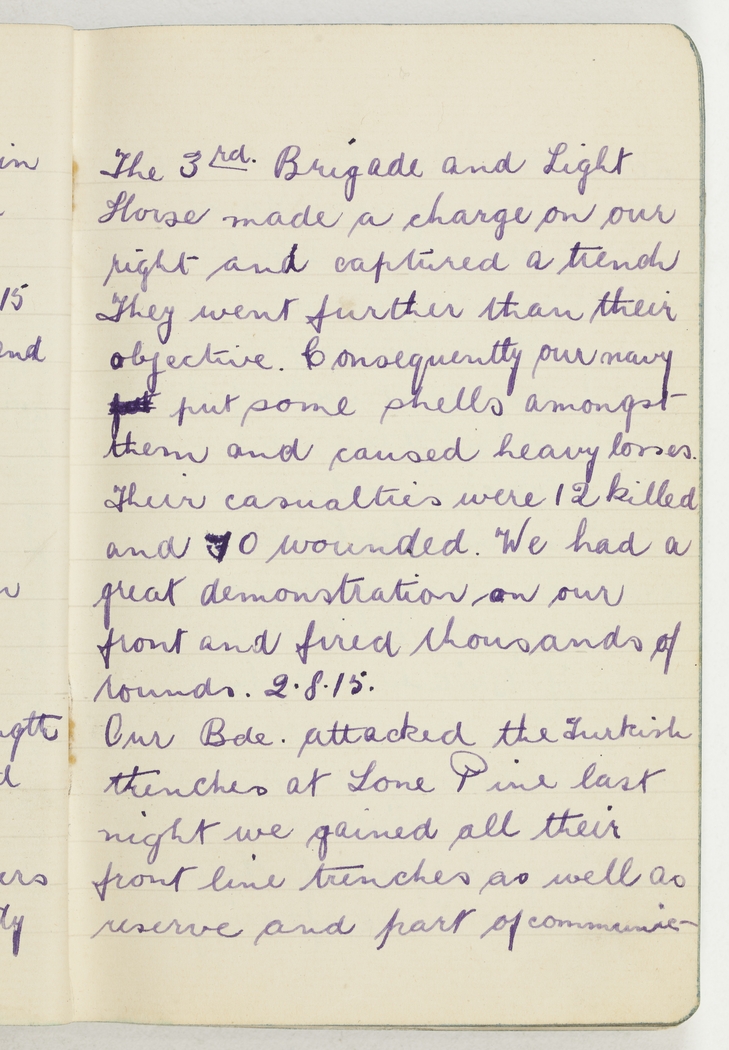 The 3rd. Brigade and Light
Horse made a charge on our
right and captured a trench
They went further than their
objective. Consequently our navy
put some shells amongst
them and caused heavy losses.
Their casualties were 12 killed
and 70 wounded. We had a
great demonstration on our
front and fired thousands of
rounds. 2.8.15.
Our Bde. attacked the Turkish
trenches at Lone Pine last
night we gained all their
front line trenches as well as
reserve and part of communic-